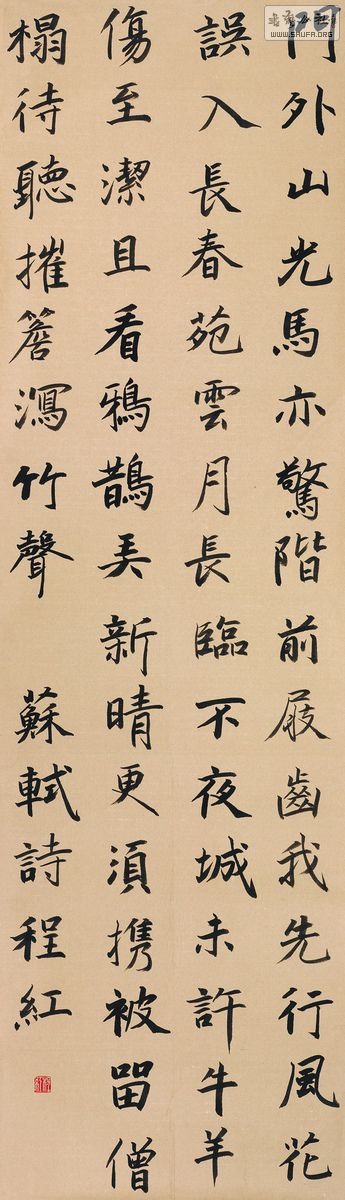 門外山光馬亦驚階前屐齒我先行風花
誤入長春苑雲月長臨不夜城未許牛羊
傷至潔且看鴉鵲弄新晴更須携被留僧
榻待聽摧簷瀉竹聲 蘇軾詩程紅
WWW.SHUFA.ORG